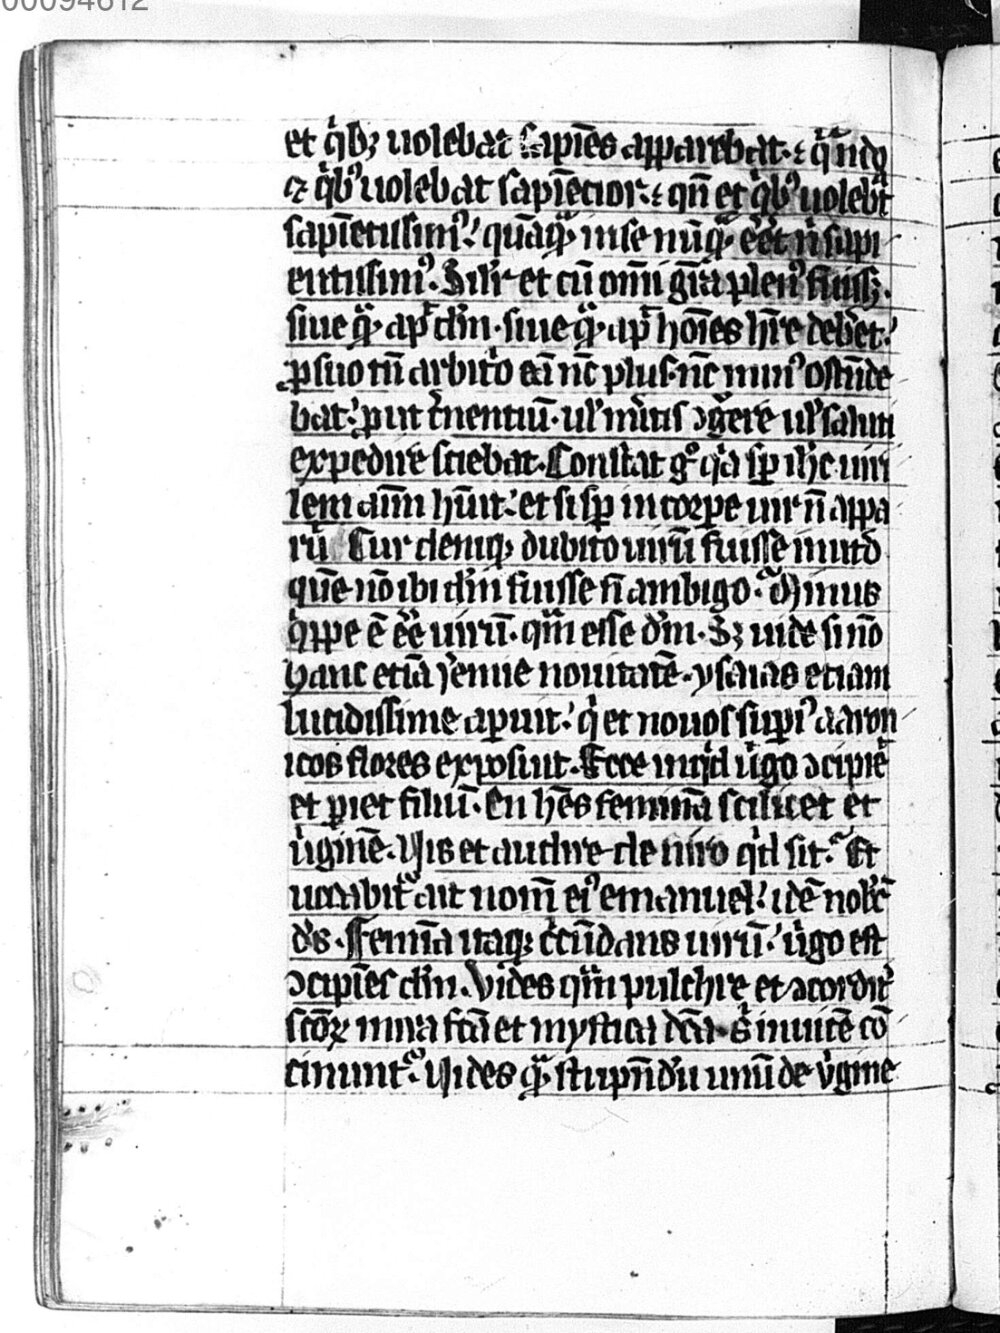 00094612
et qͥbꝫ uolebat sapiēs apparebat. ⁊ qͣndꝫ
⁊ qͥbꝰ uolebat sapīecior. ⁊ qn̄ et qͥbꝰ uolebt̄
sapīetissimꝰ. quāqͣ in se nūqͣ eēt nͥ sapi
entissimꝰ. Silͥr et cū om̄i gr̄a plenꝰ fuissꝫ.
siue qͣ apͩ dm̄. siue qͣ apͩ hoīes hr̄e deb̄et.
ꝓ suo tn̄ arbitͥo eā nc̄ plus. nc̄ minꝰ ostn̄de
bat. put in̄entiū. ul̓ mͥtis ꝯgͣere ul̓ saluti
expedire sciebat. Constat gͦ qͥa sp̄ ih̄c uiri
lem aīm hūit. et si sp̄ in corpe uir n̄ appa
rū. Cur deniqꝫ dubito uirū fuisse in utͦ
quē nō ibi dm̄ fuisse n̄ ambigo. Minus
qͥppe ē eē̄ uirū. qͣm esse dm̄. Sꝫ uide si nō
hanc etiā ieͬmie nouitatē. ysaias etiam
lucidissime apuit. qͥ et nouos supͥꝰ aaron
icos flores exposuit. Ecce inqͥd uͥgo ꝯcipieͭ
et pͥet filiū. En hēs feminā scilicet et
uͥginē. Uis et audire de uiro qͥd sit. Et
uocabitͬ ait nom̄ eiꝰ emanuel. idē nobc̄
ds̄. Femīa itaqꝫ cͥcūdans uirū. uͥgo est
ꝯcipiēs dm̄. Vides qͣm pulchre et ꝯcorditͬ
scōꝝ mira fc̄a et mystica dc̄a sͥ inuicē cō
cinunt. Uides qͣ stupn̄dū unū de vͥgine